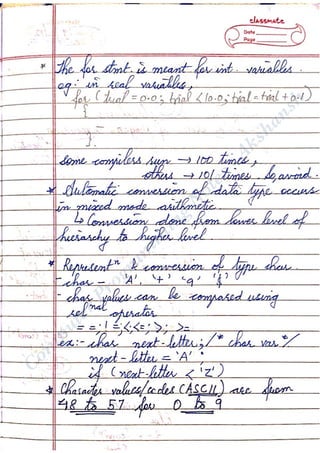 classmate
Date
Page
* The for stmt. is meant for int. variables.
eg:- in real variables,
for (trial = 0.0; trial < 10.0; trial = trial + 0.1)
{
}
Some compilers run → 100 times,
others → 101 times. So, avoid.
* Automatic conversion of data type occurs
in mixed mode arithmetic.
↳ Conversion done from lower level of
hierarchy to higher level
* Represent^n & conversion of type char.
- char - 'A', '+' '9' '$'
- char values can be compared using
rel^nal operator
= =; ! =; <; <=; >; >=
ex:- char next-letter; /* char var */
next-letter = 'A';
if (next-letter < 'Z')
* Character values/codes (ASCII) are from
48 to 57 for 0 to 9